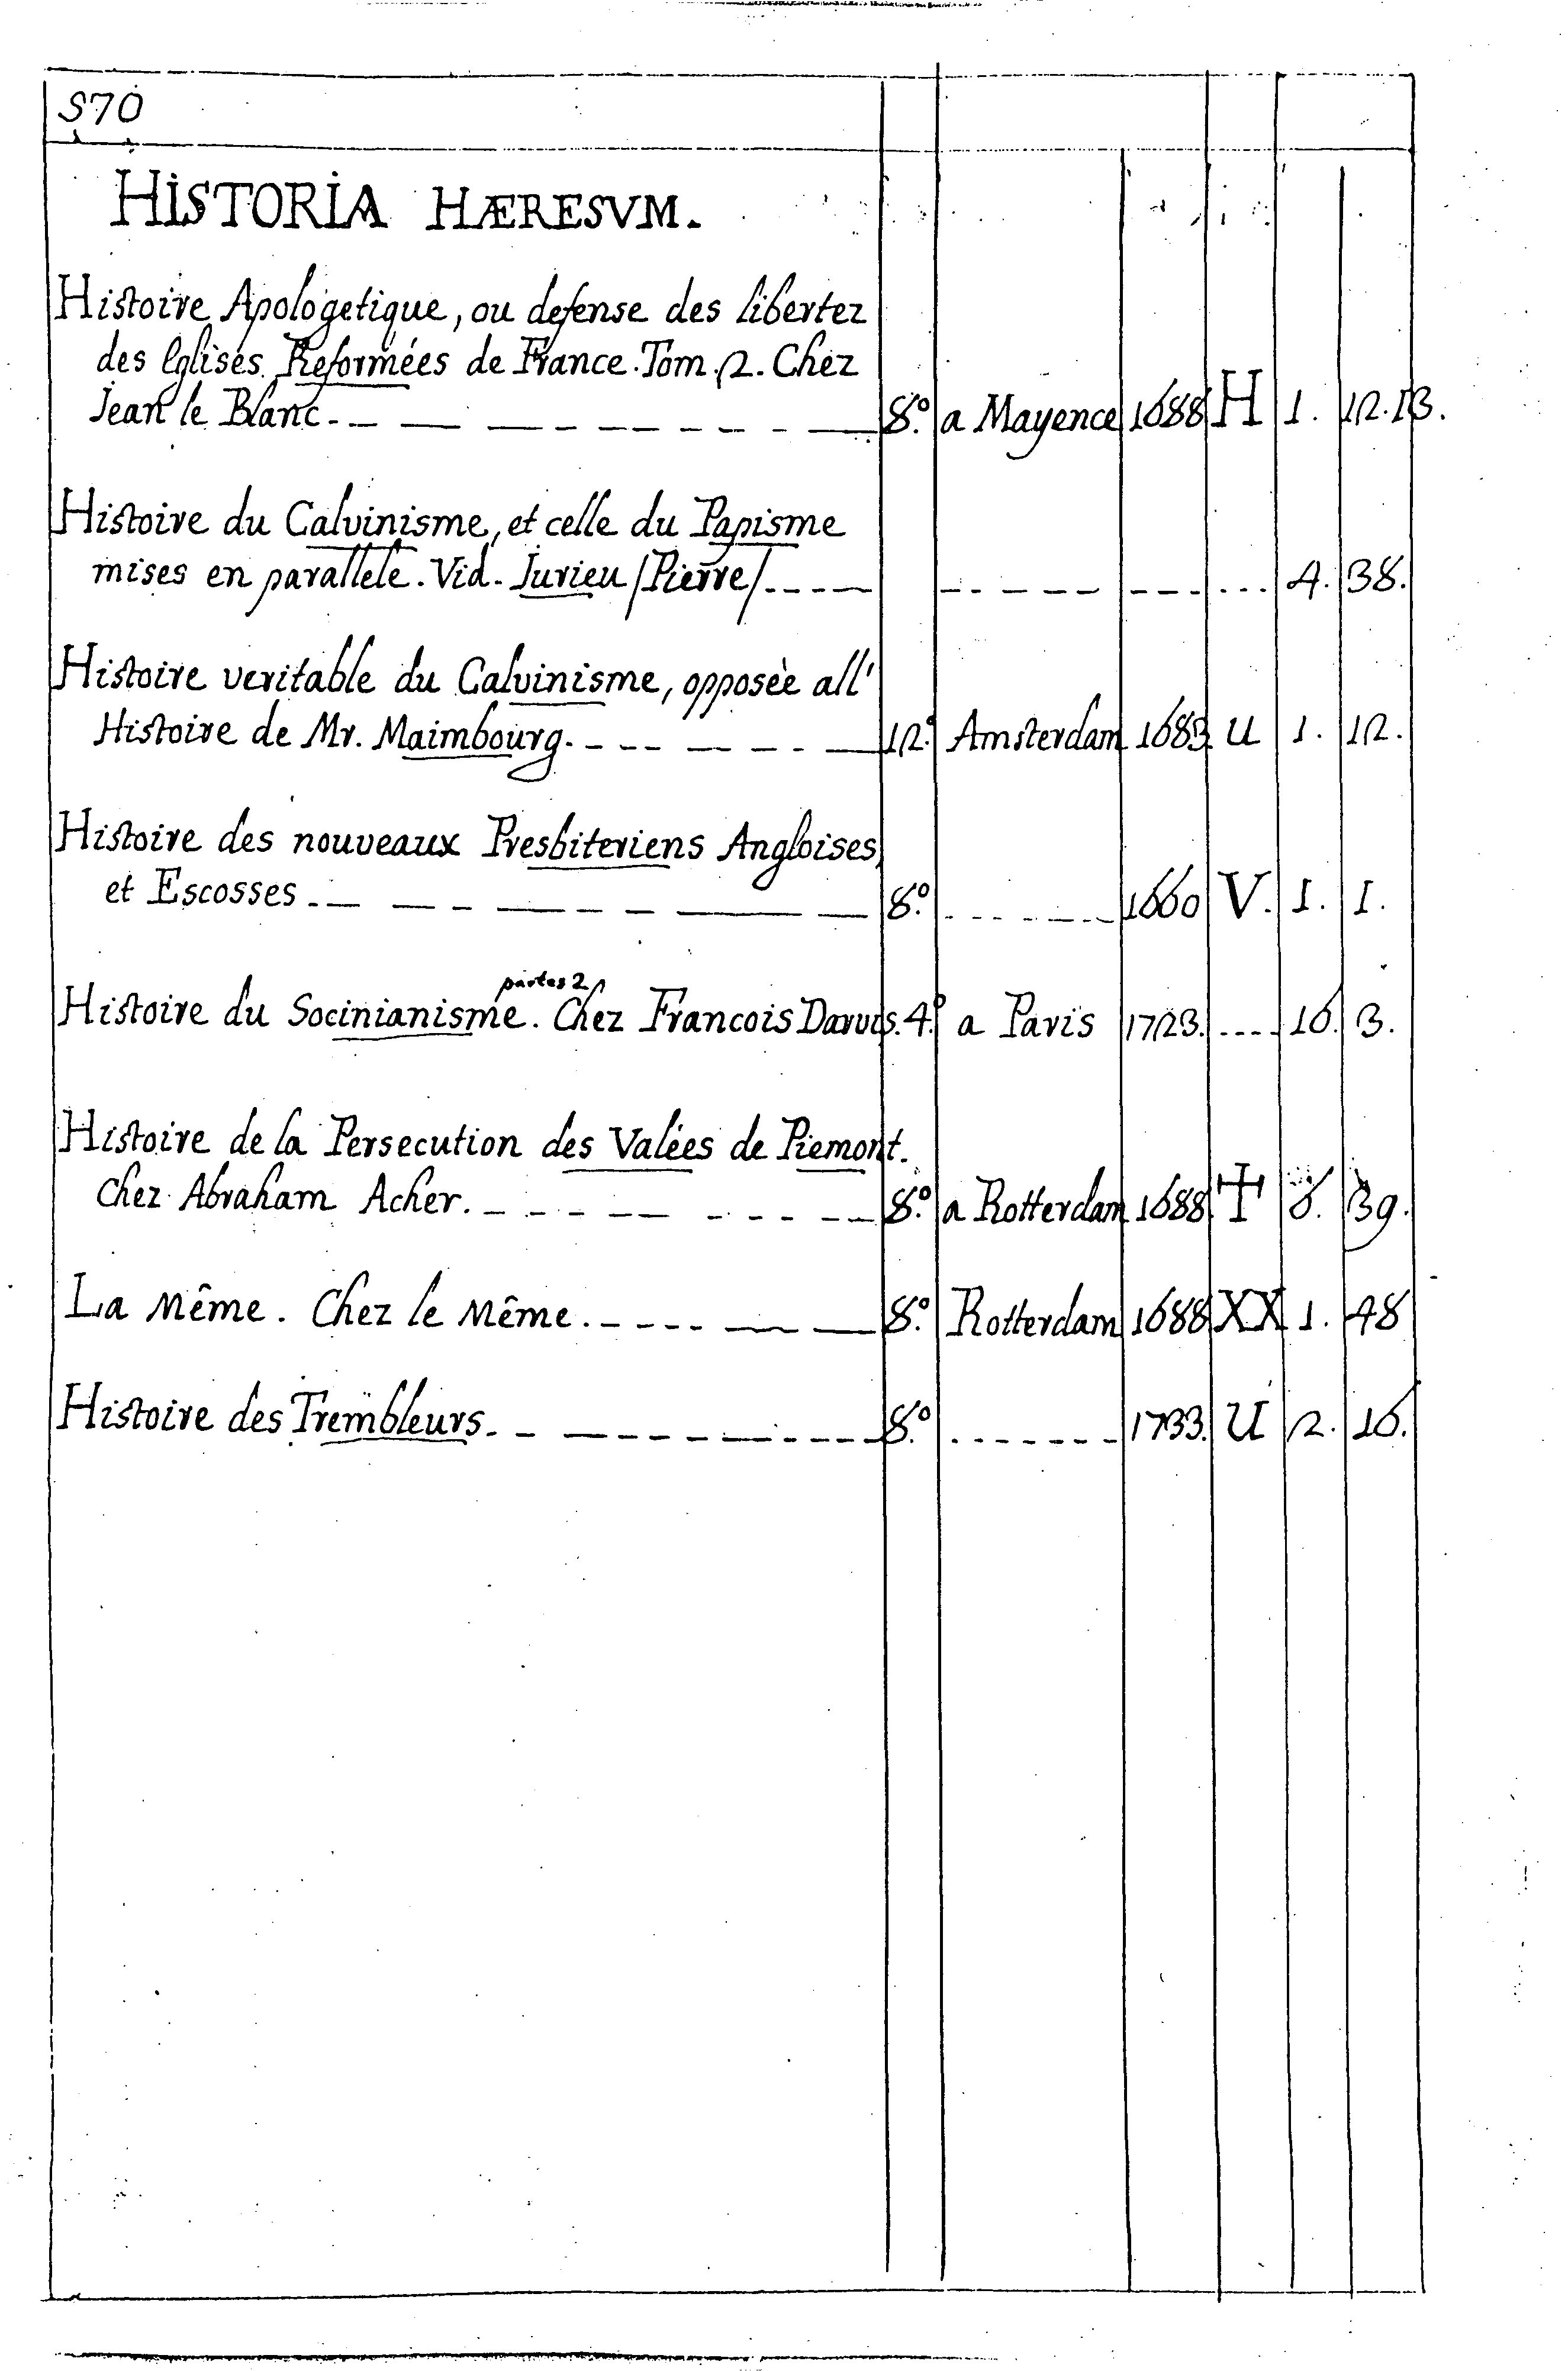 570
HISTORIA HÆRESVM.
Histoire Apologetique, ou defense des libertez
des Eglises Reformées de France. Tom. 2. Chez
Jean le Blanc. 8.º a Mayence 1688 H 1. 12.13.
Histoire du Calvinisme, et celle du Papisme
mises en parallele. Vid. Jurieu /Pierre/ 4. 38.
Histoire veritable du Calvinisme, opposèe all'
Histoire de Mr. Maimbourg. 12.º Amsterdam 1683 U 1. 12.
Histoire des nouveaux Presbiteriens Angloises,
et Escosses 8.º 1660 V. 1. 1.
partes 2
Histoire du Socinianisme. Chez Francois 4.º a Paris 1723. 16. 3.
Histoire de la Persecution des Valées de Piemont.
Chez Abraham Acher. 8.º a Rotterdam 1688 † 6. 39.
La Même. Chez le Même. 8.º Rotterdam 1688 XX 1. 48
Histoire des Trembleurs. 8.º 1733. U 2. 16.